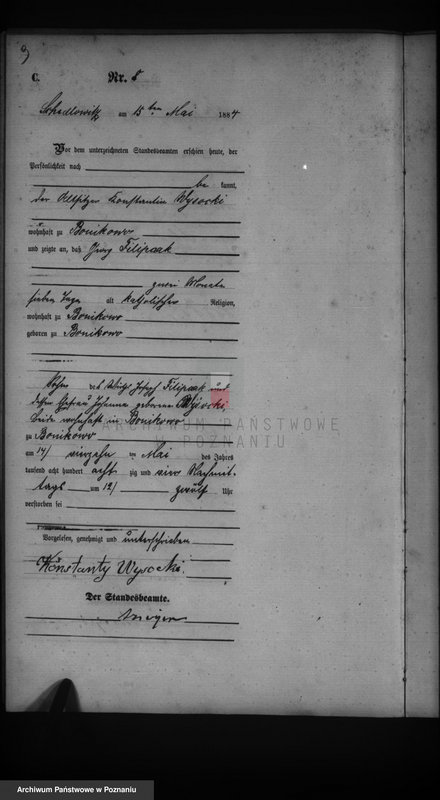 9
C. Nr. 8
am 15ten Mai 1884
Vor dem unterzeichneten Standesbeamten erschien heute, der
Persönlichkeit nach
be kannt,
der Altsitzer Konstantin Wysocki
wohnhaft zu Bonikowo
und zeigte an, daß Georg Filipczak
zwei Monate
sieben Tage alt katholischer Religion,
wohnhaft zu Bonikowo
geboren zu Bonikowo
Sohn des Wirths Joseph Filipczak und
dessen Ehefrau Johanna geborene Wysocki,
beide wohnhaft in Bonikowo
zu Bonikowo
am 14/ vierzehn ten Mai des Jahres
tausend acht hundert acht zig und vier Nachmit-
tags um 12/ zwölf Uhr
verstorben sei
Vorgelesen, genehmigt und unterschrieben
Konstanty Wysocki
Der Standesbeamte.
ARCHIWUM PAŃSTWOWE
W POZNANIU
Archiwum Państwowe w Poznaniu